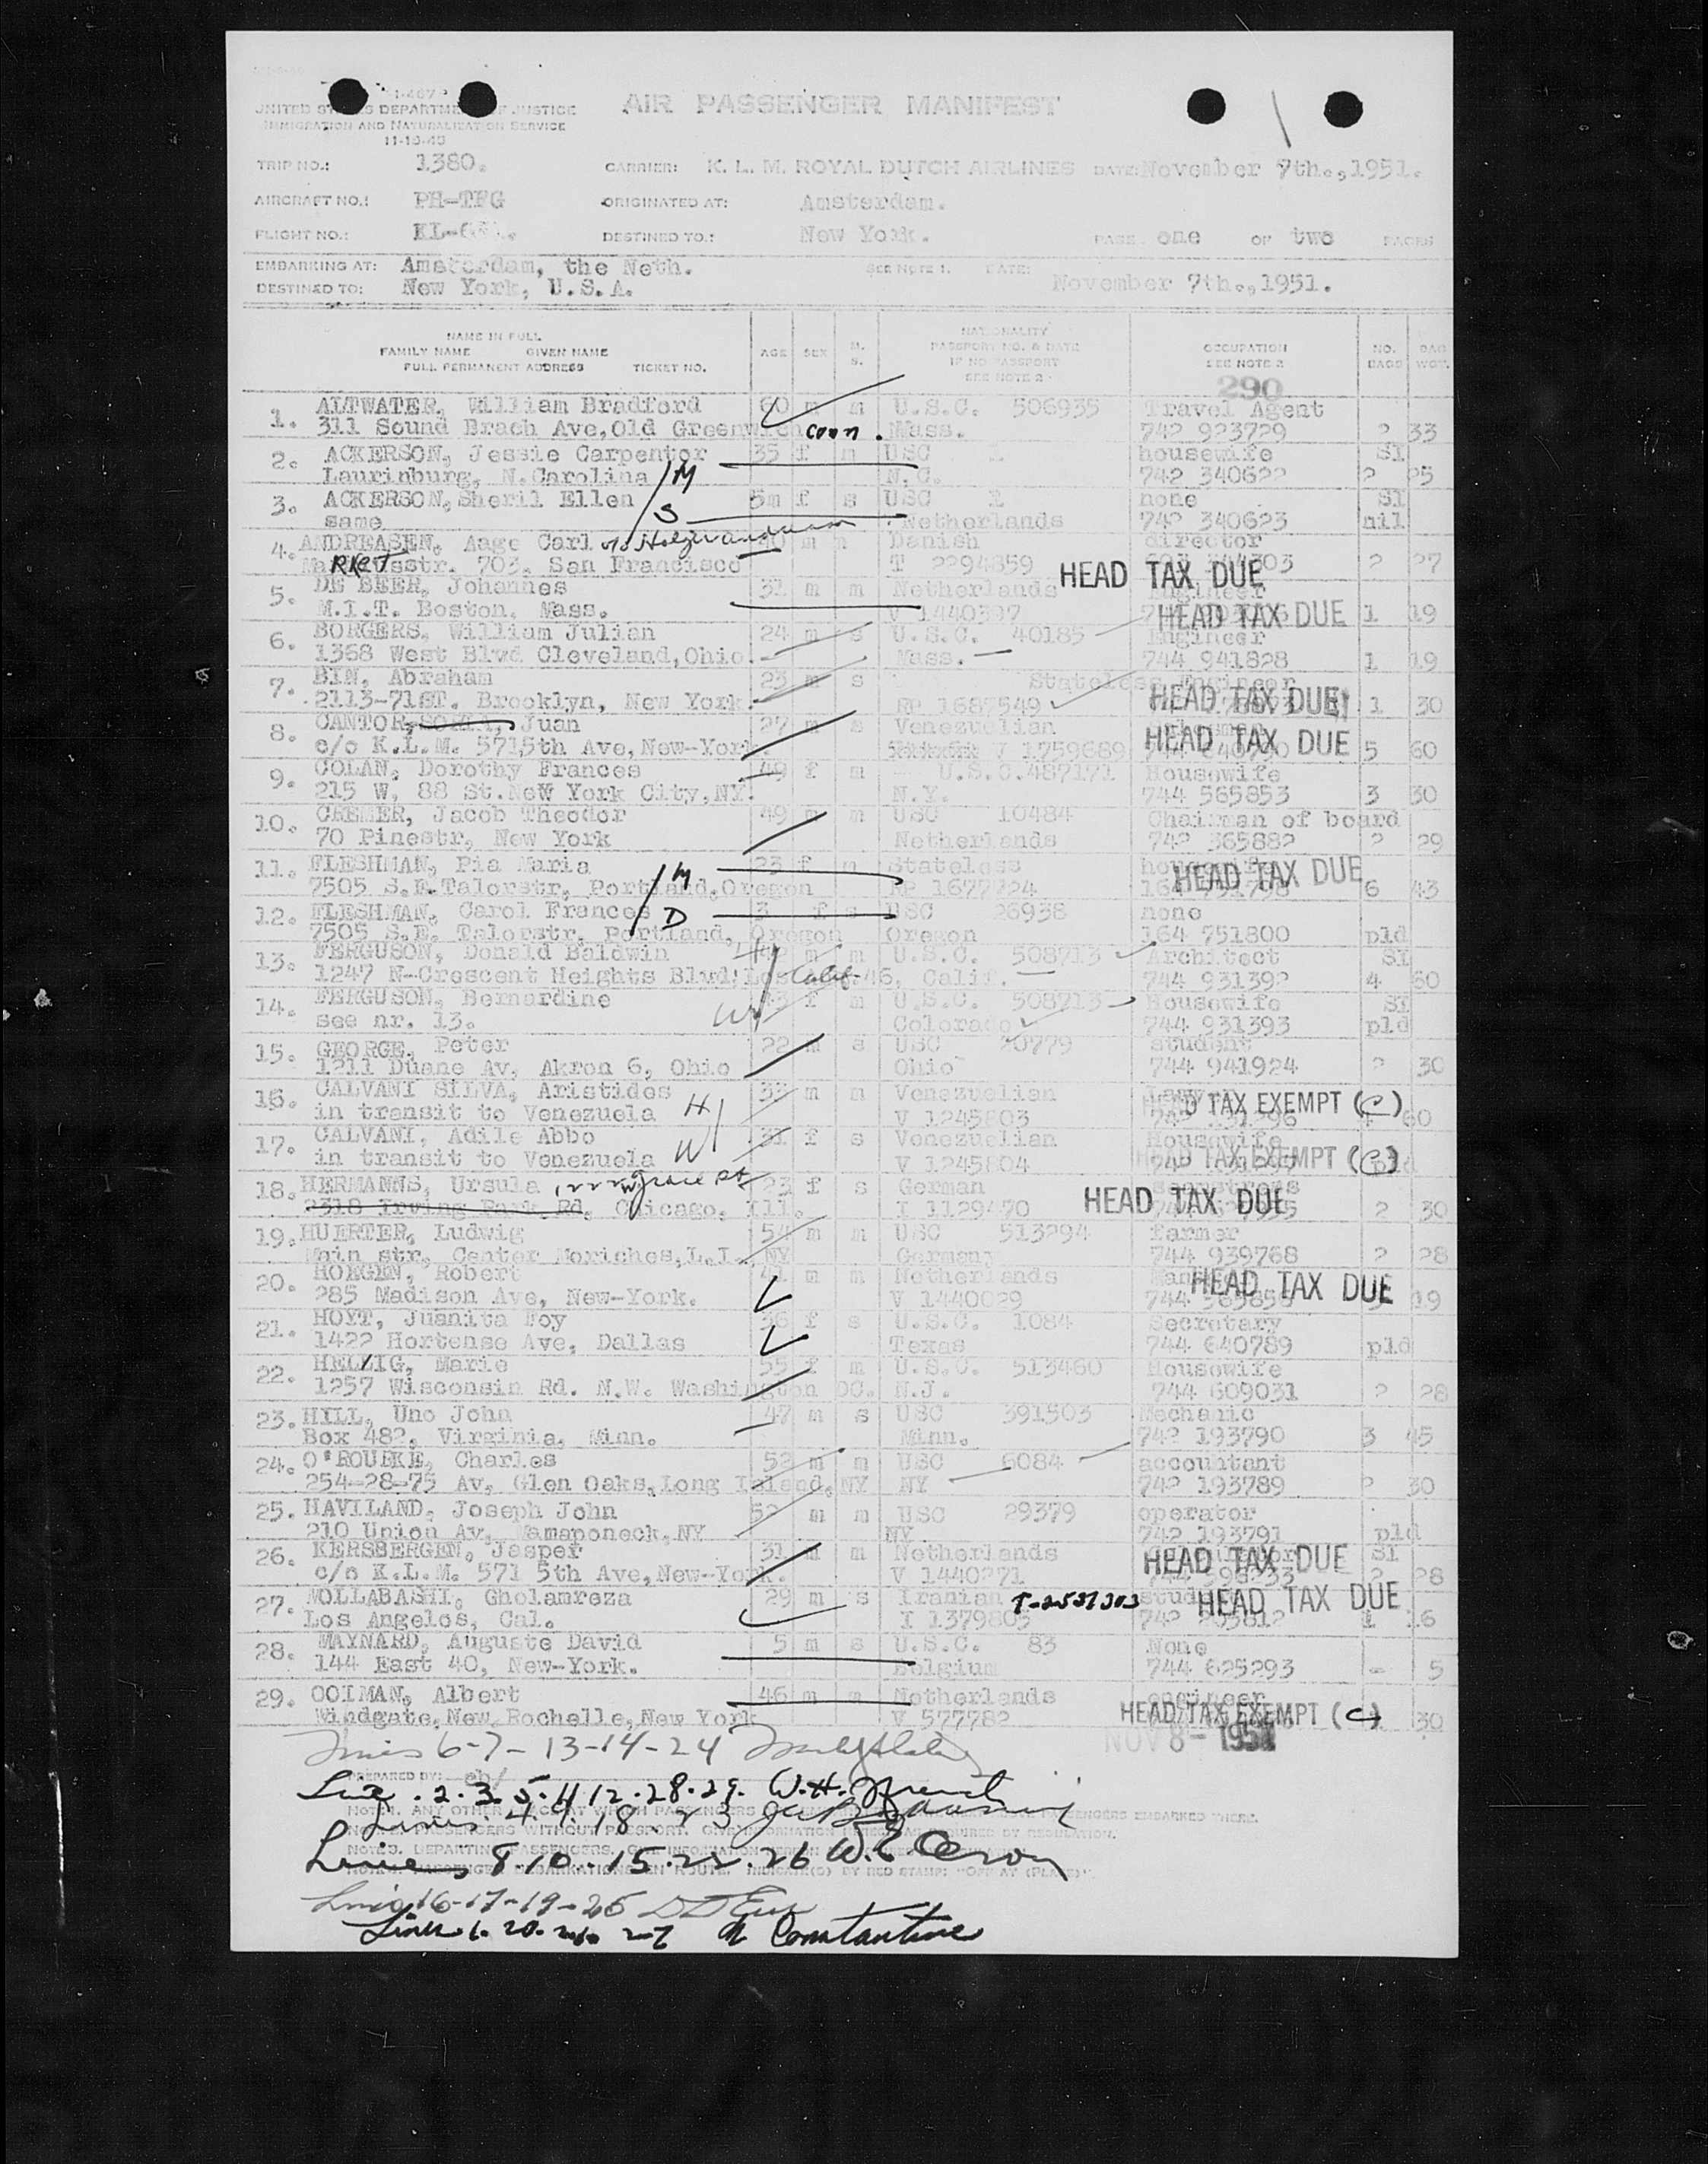 I-467
UNITED STATES DEPARTMENT OF JUSTICE
IMMIGRATION AND NATURALIZATION SERVICE
11-10-48
AIR PASSENGER MANIFEST
TRIP NO.: 1380. CARRIER: K. L. M. ROYAL DUTCH AIRLINES DATE: November 7th.,1951.
AIRCRAFT NO.: PH-TFG ORIGINATED AT: Amsterdam.
FLIGHT NO.: DESTINED TO.: New York. PAGE one OF two PAGES
EMBARKING AT: Amsterdam, the Neth. SEE NOTE 1. DATE:
DESTINED TO: New York, U.S.A. November 7th.,1951.
NAME IN FULL
FAMILY NAME GIVEN NAME
FULL PERMANENT ADDRESS TICKET NO.
AGE SEX M. S.
NATIONALITY
PASSPORT NO. & DATE
IF NO PASSPORT
SEE NOTE 2
OCCUPATION
SEE NOTE 2
NO. BAGS BAG WGT.
290
1. ALTWATER, William Bradford 60 m m U.S.C. 506935 Travel Agent
311 Sound Brach Ave,Old Greenwich conn. Mass. 742 923729 2 33
2. ACKERSON, Jessie Carpenter 35 f m USC housewife SI
Laurinburg, N.Carolina M N.C. 742 340622 2 25
3. ACKERSON,Sheril Ellen 5m f s USC none SI
same S Netherlands 742 340623 nil
4. ANDREASEN, Aage Carl 40 m m Danish director
703, San Francisco T 2294859 HEAD TAX DUE 2 27
5. DE BEER, Johannes 31 m m Netherlands Engineer
M.I.T. Boston, Mass. V 1440397 HEAD TAX DUE 1 19
6. BORGERS, William Julian 24 m s U.S.C. 40185 Engineer
1368 West Blvd Cleveland,Ohio. Mass. 744 941828 1 19
7. BIN, Abraham 23 m s Stateless Engineer
2113-71ST. Brooklyn, New York. RP 1687549 HEAD TAX DUE 1 30
8. CANTOR, Juan 27 m s Venezuelian
c/o K.L.M. 5715th Ave,New-York. V 1759689 HEAD TAX DUE 5 60
9. COLAN, Dorothy Frances 49 f m U.S.C.487171 Housewife
215 W, 88 St.New York City,NY. N.Y. 744 565853 3 30
10. CREMER, Jacob Theodor 49 m m USC 10484 Chairman of board
70 Pinestr, New York Netherlands 742 365882 2 29
11. FLESHMAN, Pia Maria 23 f m Stateless housewife
7505 S.E.Talorstr, Portland,Oregon M RP 1677724 HEAD TAX DUE 6 43
12. FLESHMAN, Carol Frances D 3 f s USC 26938 none
7505 S.E. Talorstr, Portland, Oregon Oregon 164 751800 pld
13. FERGUSON, Donald Baldwin H m m U.S.C. 508713 Architect SI
1247 N-Crescent Heights Blvd; Los Calif. 46, Calif. 744 931392 4 60
14. FERGUSON, Bernardine W f m U.S.C. 508713 Housewife SI
see nr. 13. Colorado 744 931393 pld
15. GEORGE, Peter 22 m s USC 20779 student
1211 Duane Av, Akron 6, Ohio Ohio 744 941924 2 30
16. CALVANI SILVA, Aristides 33 m m Venezuelian Lawyer
in transit to Venezuela H V 1245803 D TAX EXEMPT (C) 60
17. CALVANI, Adile Abbo 31 f s Venezuelian Housewife
in transit to Venezuela W V 1245804 HEAD TAX EXEMPT (C) pld
18. HERMANNS, Ursula 23 f s German seamstress
2318 Irving Park Rd, Chicago, Ill. HEAD TAX DUE 2 30
19. HUERTER, Ludwig 54 m m USC 513294 farmer
Main str, Center Moriches,L.I. NY Germany 744 939768 2 28
20. HOEGEN, Robert 41 m m Netherlands
285 Madison Ave, New-York. V 1440029 HEAD TAX DUE 19
21. HOYT, Juanita Foy f s U.S.C. 1084 Secretary
1422 Hortense Ave, Dallas Texas 744 640789 pld
22. HELLIG, Marie 55 f m U.S.C. 513460 Housewife
1257 Wisconsin Rd. N.W. Washington DC. N.J. 744 609031 2 28
23. HILL, Uno John 47 m s USC 391503 Mechanic
Box 482, Virginia, Minn. Minn. 742 193790 3 45
24. O'ROURKE, Charles 52 m m USC 6084 accountant
254-28-75 Av, Glen Oaks,Long Island,NY NY 742 193789 2 30
25. HAVILAND, Joseph John 52 m m USC 29379 operator
210 Union Av, Mamaponeck,NY NY 742 193791 pld
26. KERSBERGEN, Jasper 31 m m Netherlands SI
c/o K.L.M. 571 5th Ave,New-York. V 1440271 HEAD TAX DUE 2 28
27. MOLLABASHI, Gholamreza 29 m s Iranian T-2531303 student
Los Angelos, Cal. I 1379803 HEAD TAX DUE 1 16
28. MAYNARD, Auguste David 5 m s U.S.C. 83 None
144 East 40, New-York. Belgium 744 625293 - 5
29. OOIMAN, Albert 46 m m Netherlands engineer
Windgate,New Rochelle,New York V 577782 HEAD TAX EXEMPT (C) 30
NOV 8- 1951
Lines 6-7-13-14-24
PREPARED BY:
Line . 2. 3. 5. 11 12. 28. 29. W.H.
Lines 4. 9. 18. 23
Lines 8. 10.. 15. 22. 26 W.E.
16-17-19-25
Lines 1. 20. 27 Constantine